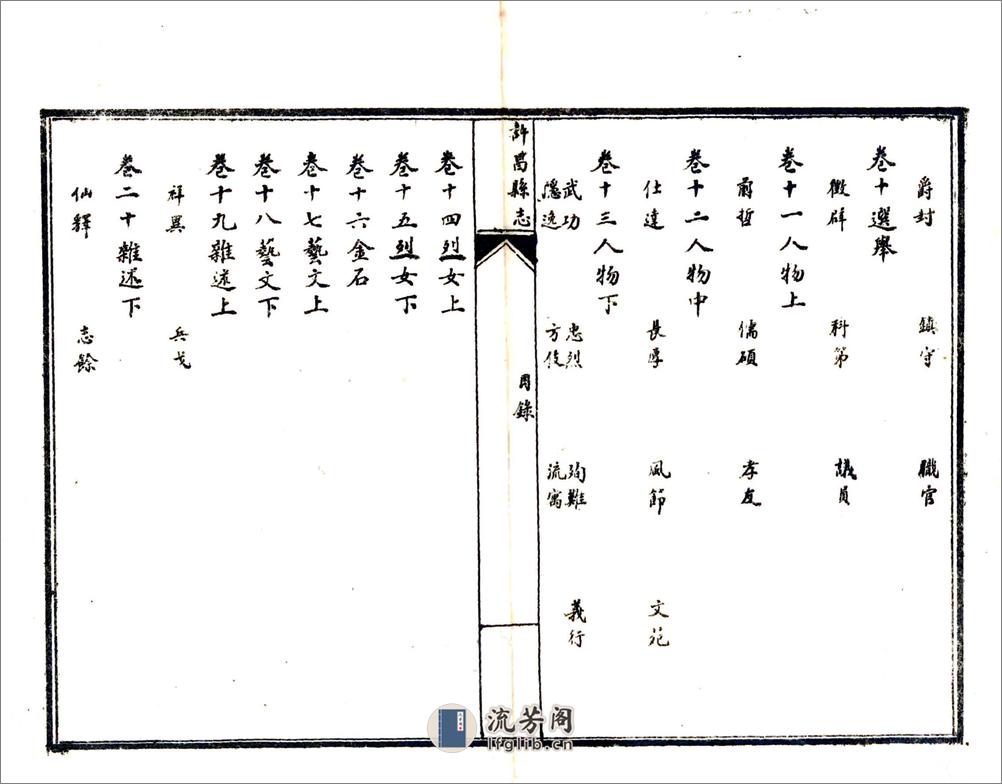 爵封　鎮守　職官
卷十選舉
徵辟　科第　議員
卷十一人物上
前哲　儒碩　孝友
卷十二人物中
仕達　長厚　風節　文苑
卷十三人物下
武功　忠烈　殉難　義行
隱逸　方伎　流寓
許昌縣志　目錄
卷十四烈女上
卷十五烈女下
卷十六金石
卷十七藝文上
卷十八藝文下
卷十九雜述上
祥異　兵戈
卷二十雜述下
仙釋　志餘
流芳阁
lfglib.cn